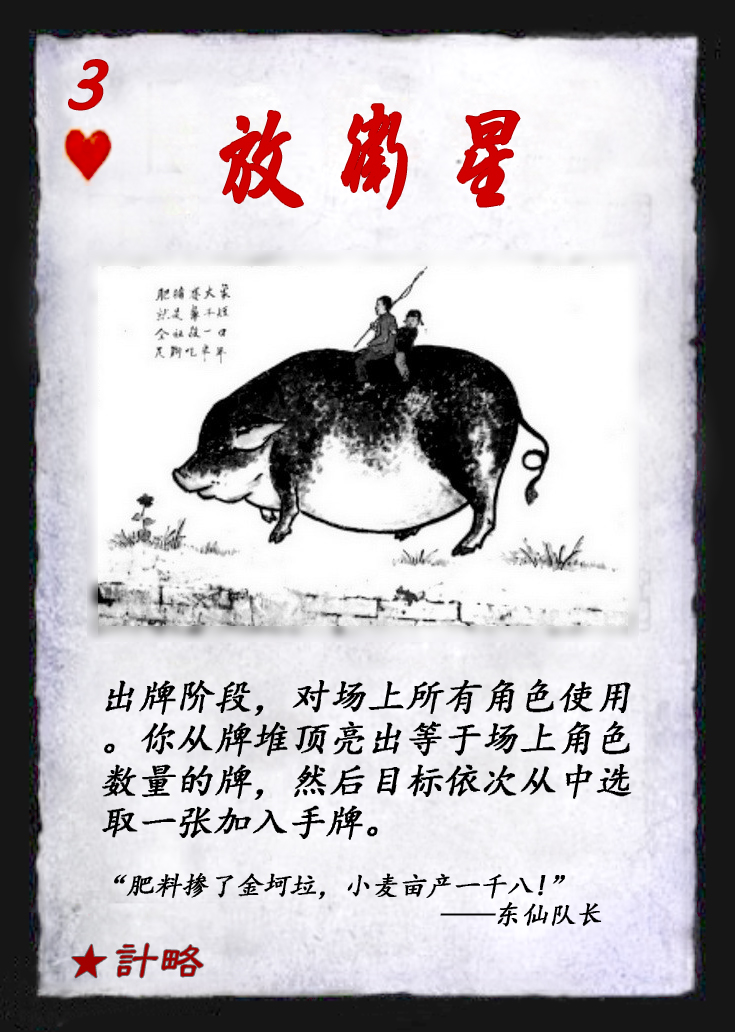 3
放衛星
肥猪赛大象
就是鼻子短
全社殺一口
足夠吃半年
出牌阶段，对场上所有角色使用
。你从牌堆顶亮出等于场上角色
数量的牌，然后目标依次从中选
取一张加入手牌。
“肥料掺了金坷垃，小麦亩产一千八！”
——东仙队长
★計略